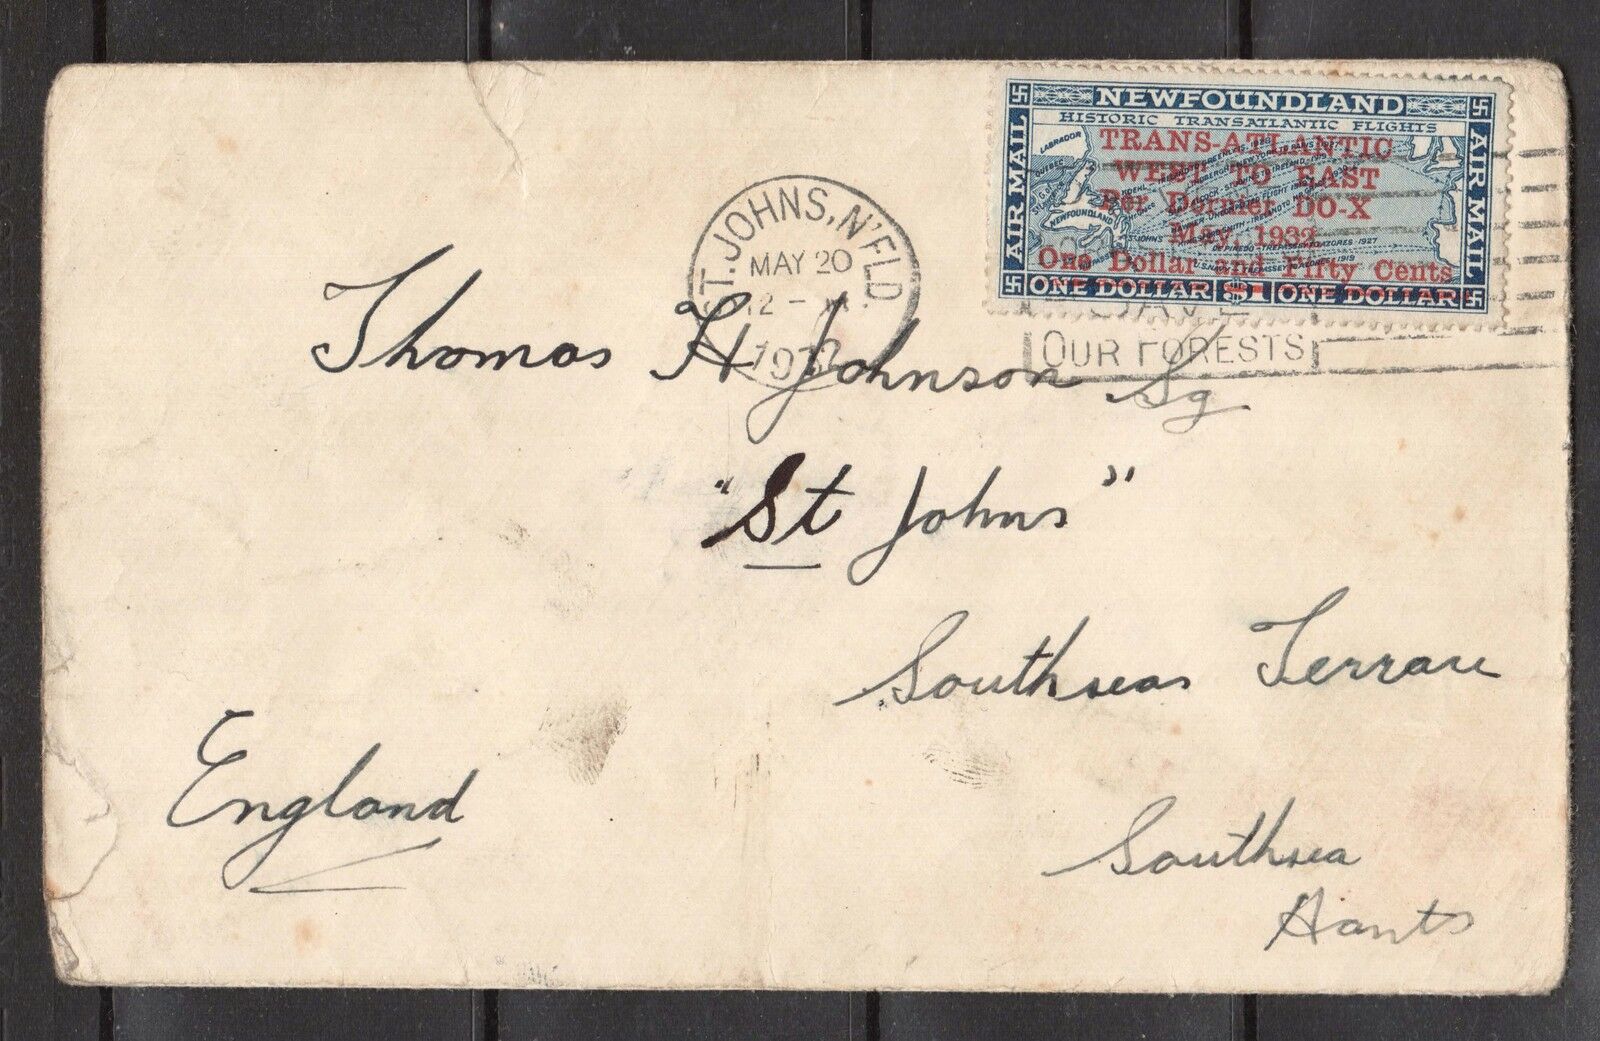 NEWFOUNDLAND
HISTORIC TRANSATLANTIC FLIGHTS
AIR MAIL
AIR MAIL
LABRADOR
QUEBEC
NEWFOUNDLAND
TRANS-ATLANTIC
WEST TO EAST
Per Dornier DO-X
May, 1932
One Dollar and Fifty Cents
ONE DOLLAR $1 ONE DOLLAR
ST. JOHNS, N'F'LD.
MAY 20
12 -
1932
OUR FORESTS
Thomas H Johnson Sq
"St Johns"
Southseas Terrace
England
Southsea
Hants